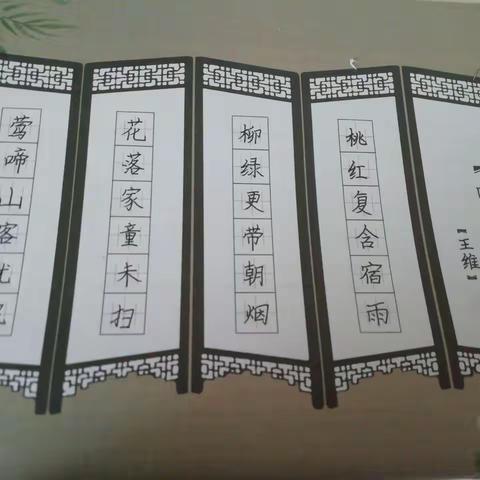 【王维】
桃红复含宿雨
柳绿更带朝烟
花落家童未扫
莺啼山客